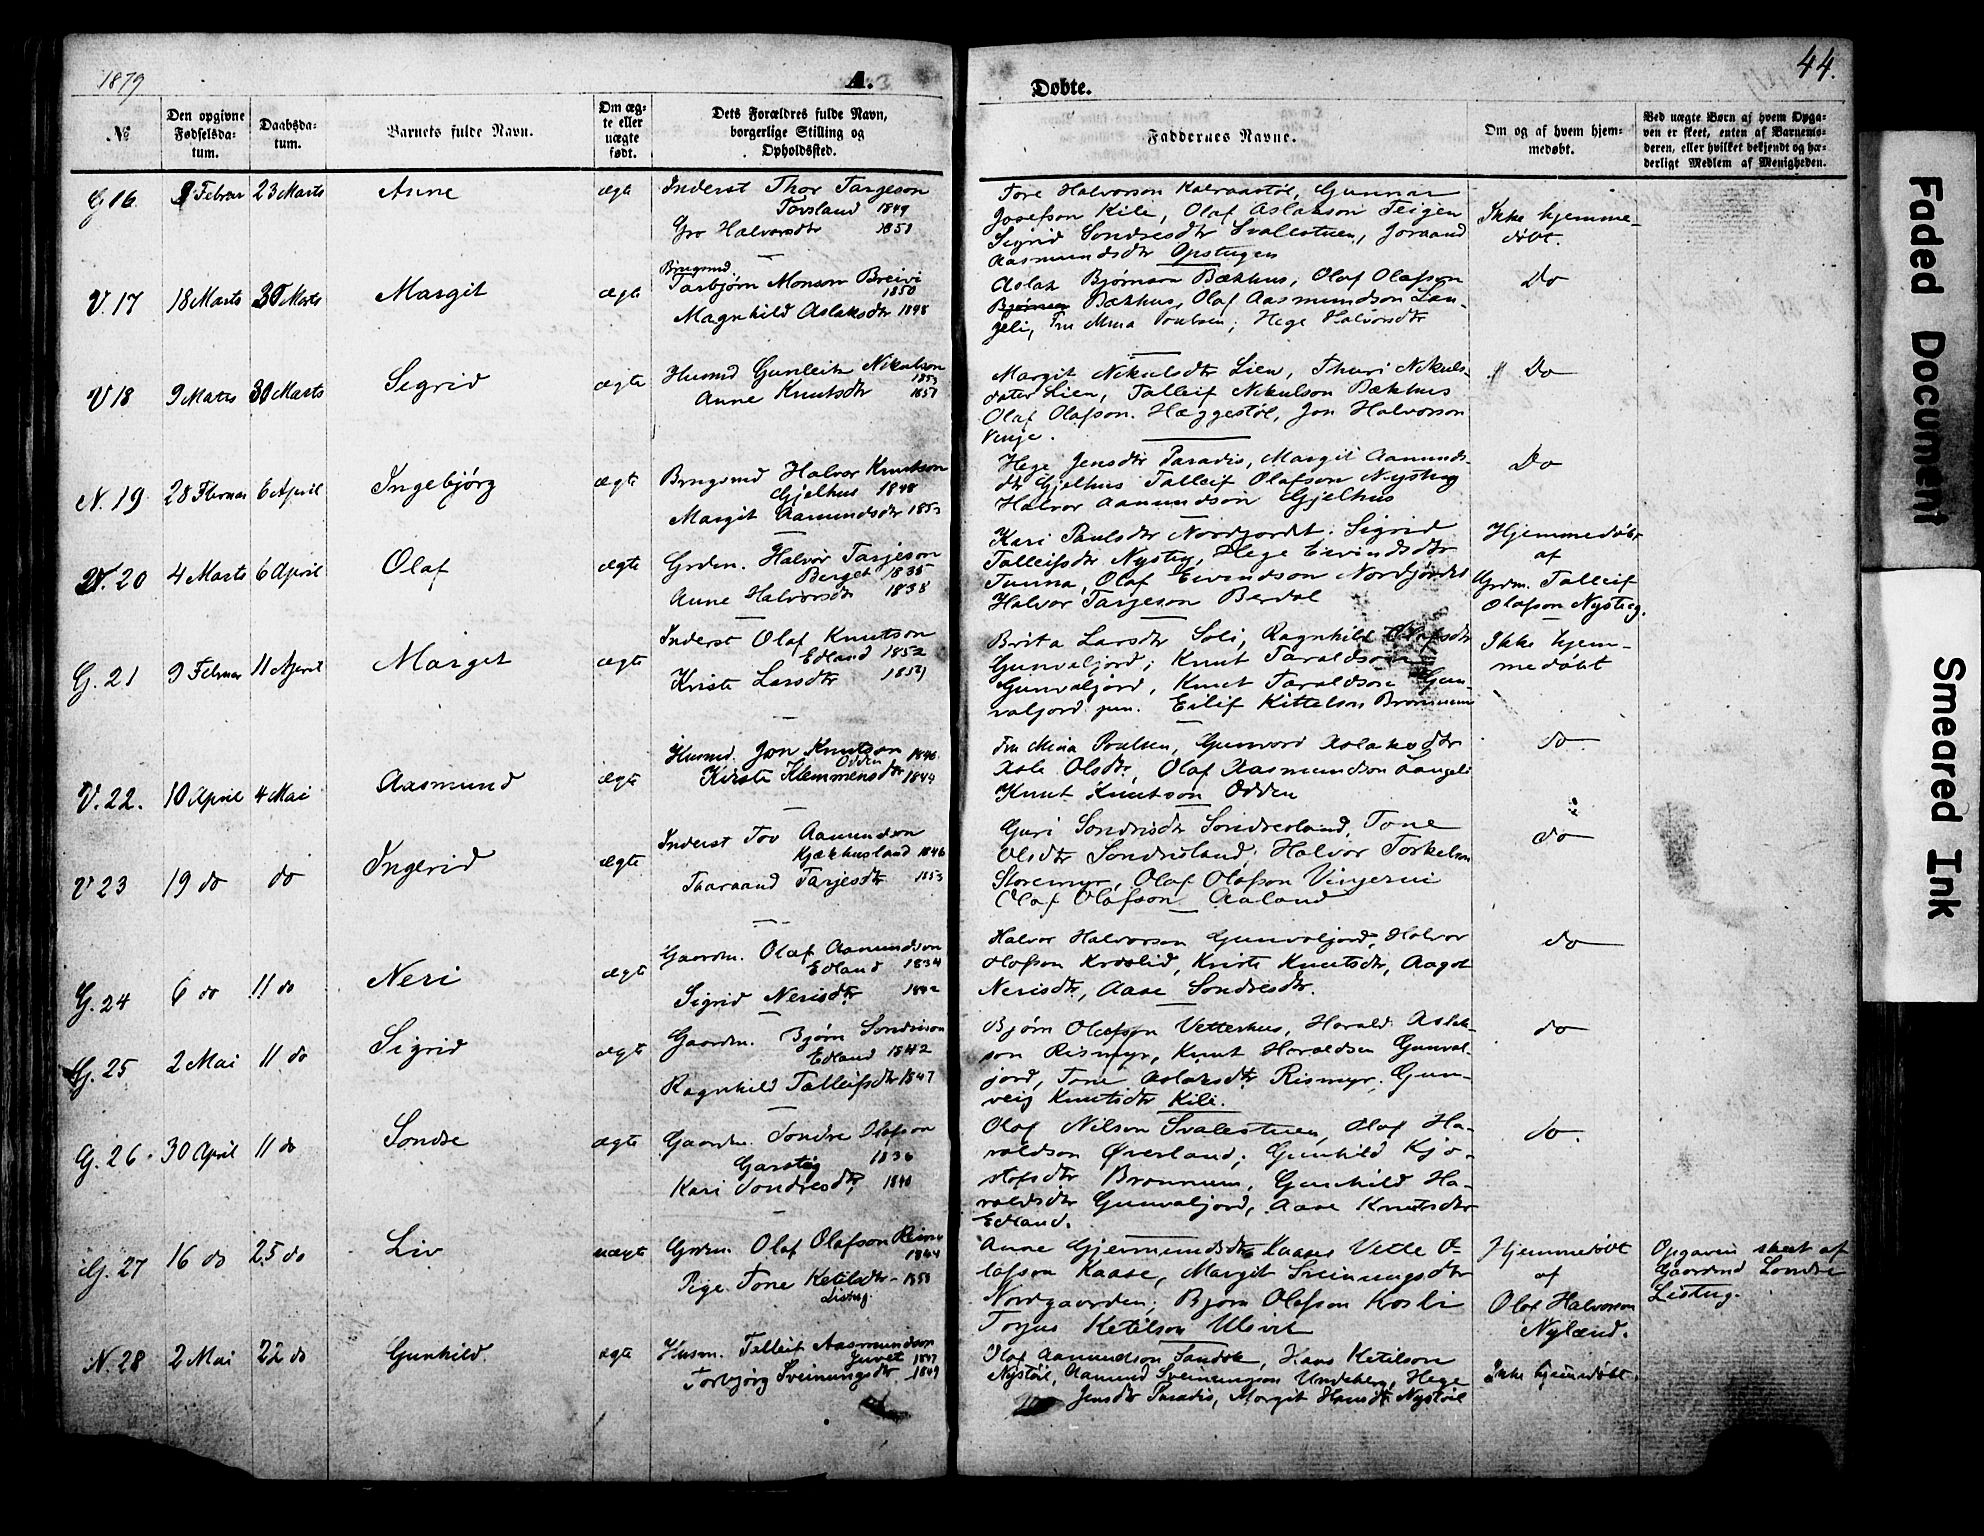 1879
A.
Døbte.
44.
№
Den opgivne Fødselsdatum.
Daabsdatum.
Barnets fulde Navn.
Om ægte eller uægte født.
Dets Forældres fulde Navn, borgerlige Stilling og Opholdssted.
Faddernes Navne.
Om og af hvem hjemmedøbt.
Ved uægte Børn af hvem Opgaven er skeet, enten af Barnemoderen, eller hvilket bekjendt og hæderligt Medlem af Menigheden.
G 16. Februar 23 Marts Anne ægte
Inderst Thor Targeson
Torsland 1849
Gro Halvorsdtr
Tore Halvorson Gunnar
Josefson Kile, Olaf Aslakson Teigen
Sigrid Sondresdtr Svalestuen, Joraand
Aasmundsdtr Opstugen
Ikke hjemme-
døbt.
V. 17 18 Marts 30 Marts Margit ægte
Brugsmd.
Tarbjørn Monson Breivi
1850
Magnhild Aslaksdtr 1848
Aslak Bjørnson Bækhus, Olaf Olafson
Bjørnson Bækhus, Olaf Aasmundson Lan-
geli, Fru Mina Poulsen, Hege Halvorsdtr
Do
V 18 9 Marts 30 Marts Sigrid ægte
Husmd Gunleik Nikulson
1853
Anne Knutsdtr 1857
Margit Nikulsdtr Lien, Thuri Nikuls-
dater Lien, Talleif Nikulson Bækhus
Olaf Olafson Hæggestøl, Jon Halvorson
Vinje.
Do
N. 19. 28 Februar 6 April Ingebjørg ægte
Brugsmd Halvor Knutson
Gjelhus 1848
Margit Aamundsdtr 1853
Hege Jensdtr Paradis, Margit Aamunds-
dtr Gjelhus Talleif Olafson Nystug
Halvor Aamundson Gjelhus
Do
N. 20 4 Marts 6 April Olaf ægte
Grdm. Halvor Tarjeson
Berget 1835
Anne Halvorsdtr 1838
Kari Paulsdtr Nordgordet. Sigrid
Talleifsdtr Nystug, Hege Eivindsdtr
Tunna, Olaf Eivendson Nordjordet
Halvor Tarjeson Berdal
Hjemmedøbt
af
Grdm. Talleif
Olafson Nystug.
G. 21 9 Februar 11 April Marget ægte
Inderst Olaf Knutson
Edland 1852
Kristi Larsdtr
Brita Larsdtr Soli, Ragnhild Olafsdtr
Gunvaljord, Knut Taraldson
Gunvaljord, Knut Taraldson Gun-
valjord jun. Eilif Kittelson Brommem
Ikke hjem-
medøbt
V. 22. 10 April 4 Mai Aasmund ægte
Husmd. Jon Knutson 1846
Odden
Kirste Klemmensdtr 1844
Fru Mina Poulsen, Gunvord Aslaksdtr
Olsdtr, Olaf Aasmundson Langeli
Knut Knutson Odden
do
V 23 19 do do Ingerid ægte
Inderst Tov Aamundson
Kjækhusland 1846
Tharaand Tarjesdtr 1853
Guri Sondresdtr Sondresland, Tone
Olsdtr Sondresland, Halvor Torkelson
Storemyr, Olaf Olafson Vinjerui
Olaf Olafson Aaland
do
G. 24 6 do 11 do Neri ægte
Gaardm. Olaf Aamundson
Edland 1834
Sigrid Nerisdtr 1842
Halvor Halvorson Gunvaljord, Halvor
Olafson Kroslid, Kriste Knutsdtr, Aagot
Nerisdtr, Aase Sondresdtr.
do
G. 25 2 Mai 11 do Sigrid ægte
Gaardm. Bjørn Sondreson
Edland 1842
Ragnhild Talleifsdtr 1847
Bjørn Olafson Vetterhus, Harald Aslak-
son Rismyr, Knut Haraldsen Gunval-
jord, Tone Aslaksdtr Rismyr, Gun-
veig Knutsdtr Kili.
do
G. 26. 30 April 11 do Sondre ægte
Gaardm. Sondre Olafson
Garsteg 1836
Kari Sondresdtr 1840
Olaf Nilson Svalestuen, Olaf Ha-
raldson Øverland, Gunhild Kjø-
stofsdtr Brommem, Gunhild Ha-
raldsdtr Gunvaljord, Aase Knutsdtr
Edland.
do.
G. 27 16 do 25 do Liv uægte
Grdm. Olaf Olafson
1844
Pige Tone Ketilsdtr 1850
Listug.
Anne Gjermundsdtr Kaase Vetle O-
lafson Kaase, Margit Sveinungsdtr
Nordgaarden, Bjørn Olafson Kosli
Torjus Ketilson Ulsvit
Hjemmedøbt
af
Olaf Halvorson
Nyland.
Opgaven skeet af
Gaardmd Sondre
Listug.
N. 28 2 Mai 22 do Gunhild. ægte
Husm. Telleif Aasmundson
Juvet 1847
Torbjørg Sveinungsdtr 1849
Olaf Aamundson Sandok, Hans Ketilson
Nystøil, Aamund Sveinungson Undeberg, Hege
Jensdtr Paradis, Margit Hansdtr Nystøil
Ikke hjemmedøbt
Faded Document
Smeared Ink